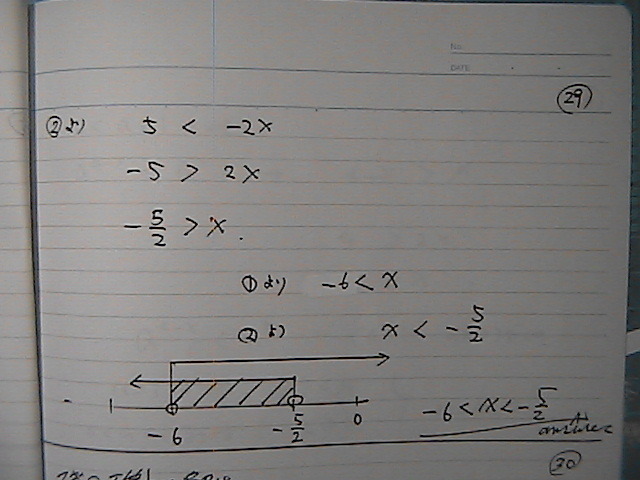 No.
DATE
29
②より 5 < -2x
-5 > 2x
-5/2 > x.
①より -6 < x
②より x < -5/2
-6 -5/2 0
-6 < x < -5/2
answer
30